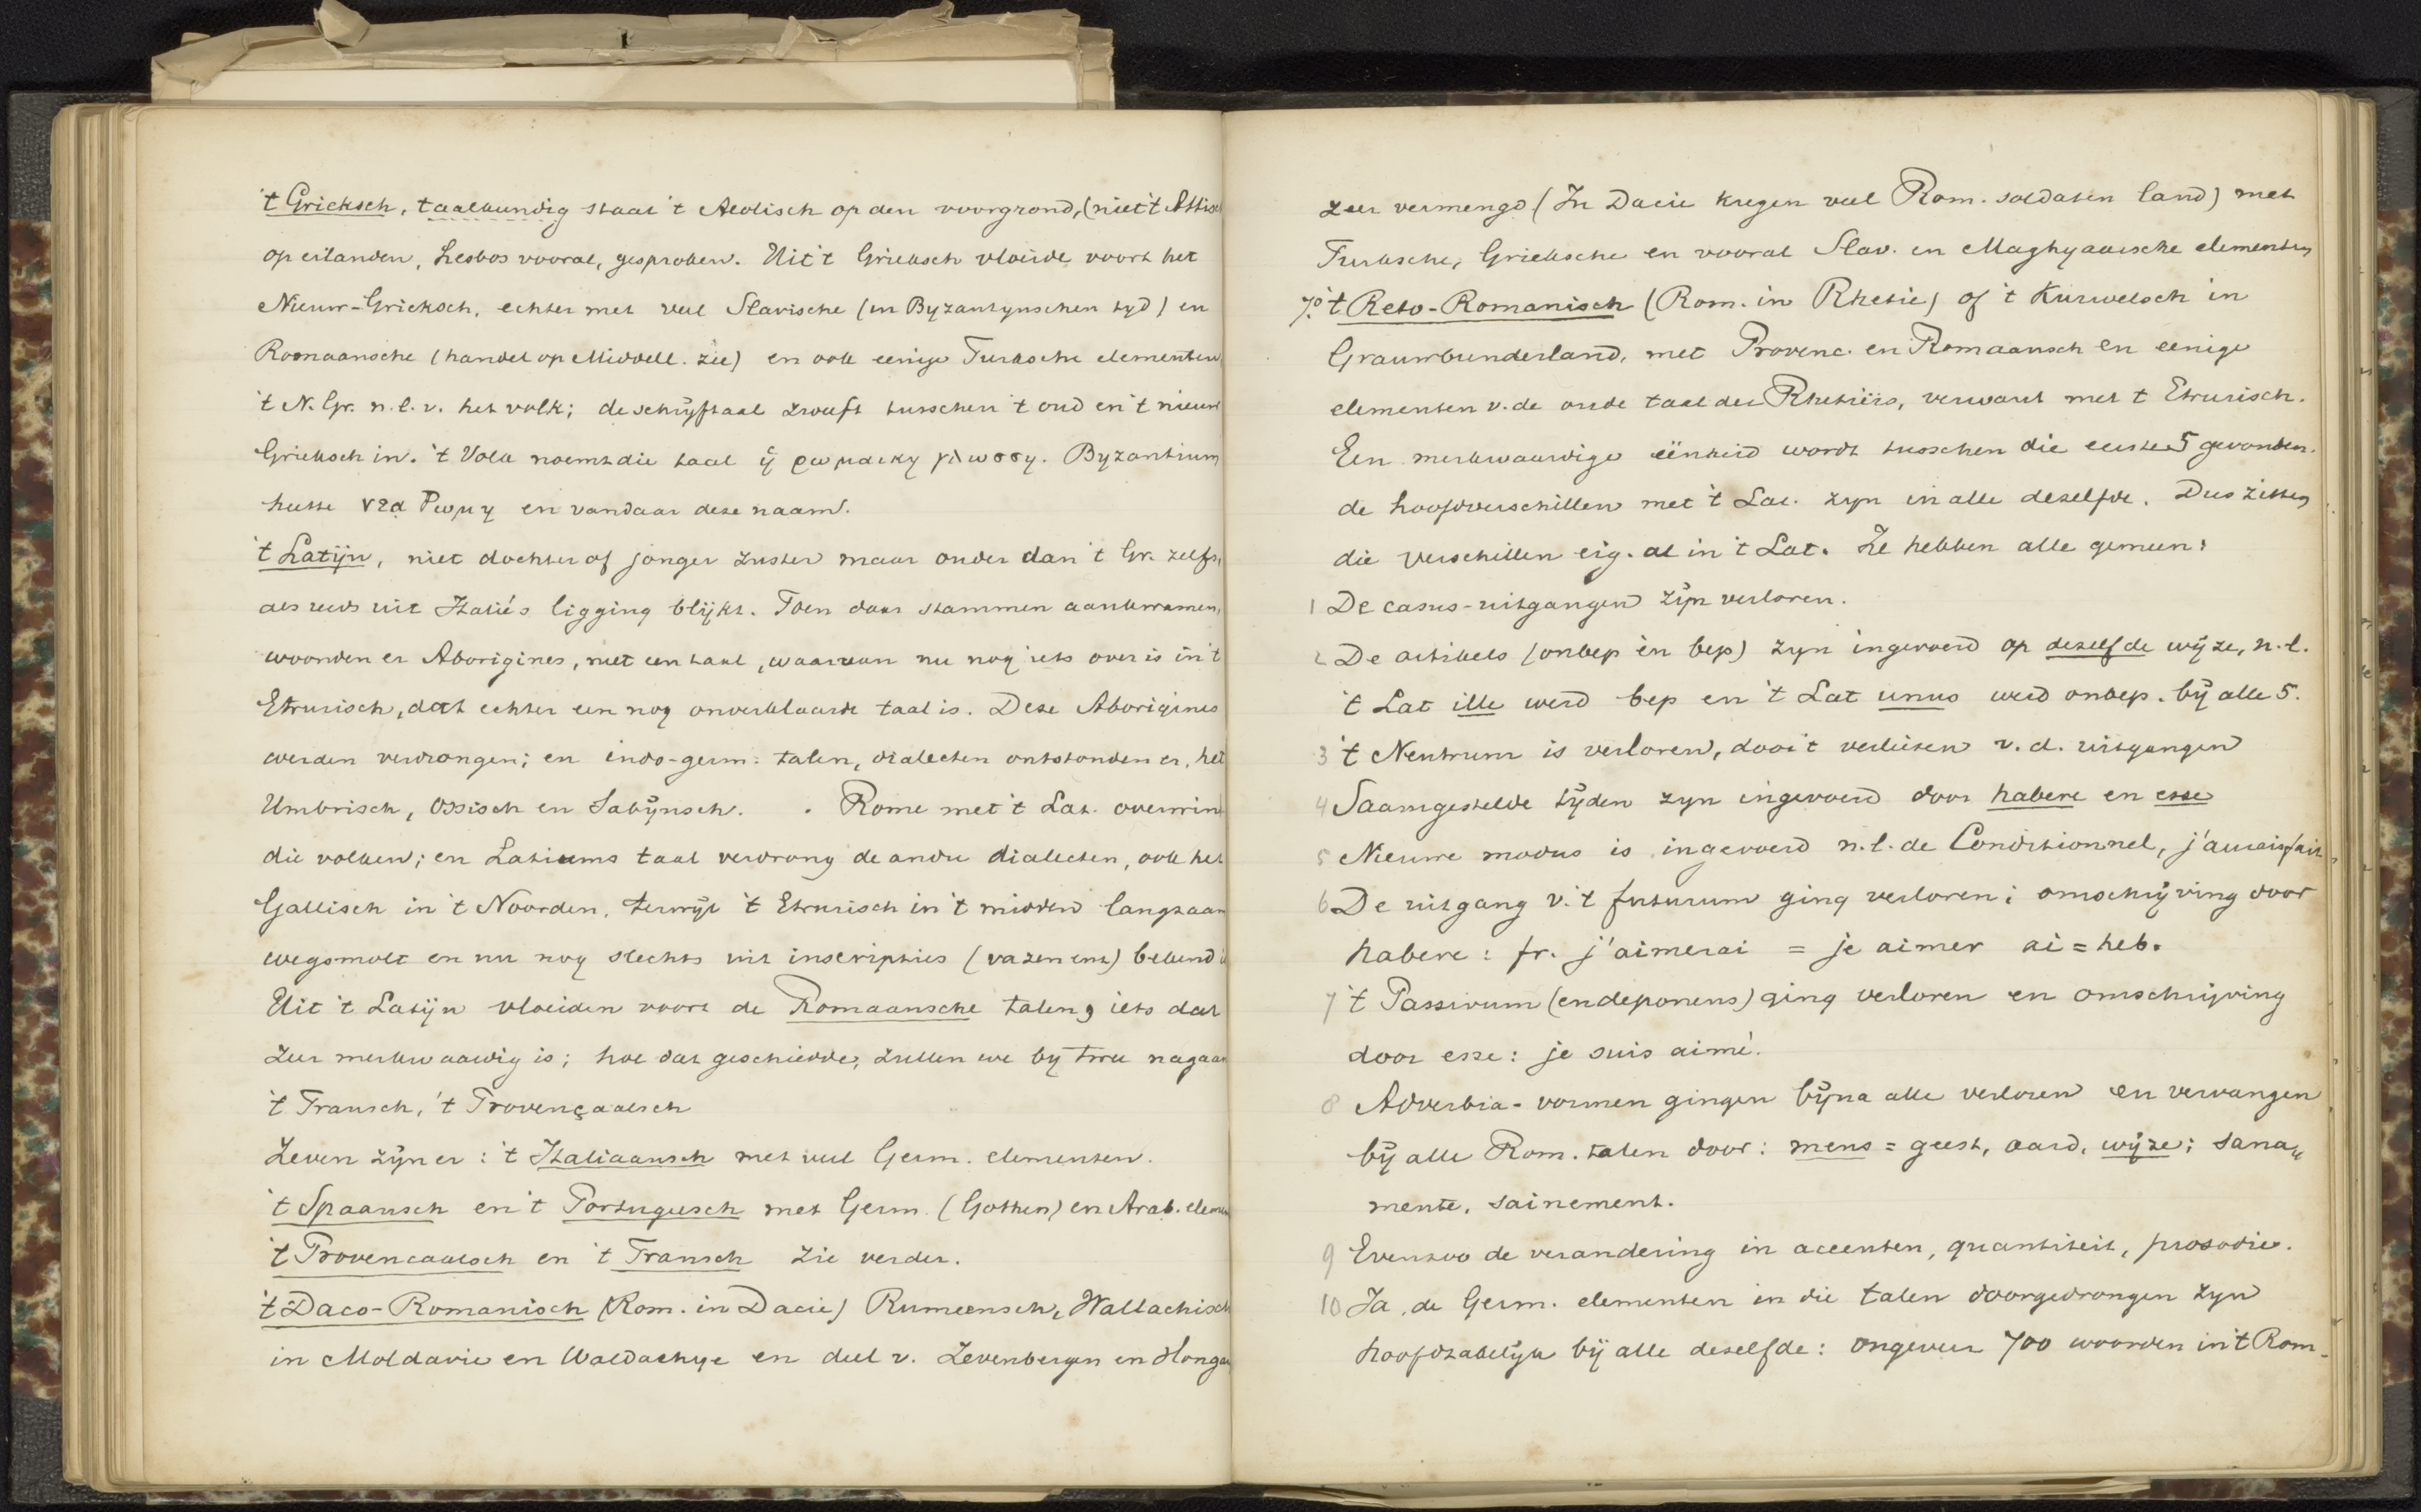 't Grieksch, taalkundig staat 't Aeolisch op den voorgrond, (niet 't Attisch
op eilanden, Lesbos vooral, gesproken. Uit 't Grieksch vloeide voort het
Nieuw-Grieksch, echter met veel Slavische (in Byzantynschen tyd) en
Romaansche (handel op Middell. zee) en ook eenige Turksche elementen
't N. Gr. n.l. v. het volk; de schrÿftaal zweeft tusschen 't oud en 't nieuw
Grieksch in. 't Volk noemt die taal ἡ ρωμαικη γλωσση. Byzantium
heette νεα Ρωμη en vandaar deze naam.
't Latÿn, niet dochter of jonger zuster maar ouder dan 't Gr. zelfs,
als reeds uit Italië's ligging blÿkt. Toen daar stammen aankwamen,
woonden er Aborigines, met een taal, waarvan nu nog iets over is in 't
Etrurisch, dat echter een nog onverklaarde taal is. Deze Aborigines
werden verdrongen; en indo-germ. talen, dialecten ontstonden er, het
Umbrisch, Ossisch en Sabÿnsch. . Rome met 't Lat. overwin
die volken; en Latiums taal verdrong de andre dialecten, ook het
Gallisch in 't Noorden, terwÿl 't Etrurisch in 't midden langzaam
wegsmolt en nu nog slechts uit inscripties (vazen enz) bekend is
Uit 't Latÿn vloeiden voort de Romaansche talen, iets dat
zeer merkwaardig is; hoe dat geschiedde, zullen we by twee nagaan
't Fransch, 't Provençaalsch
Zeven zÿn er: 't Italiaansch met veel Germ. elementen.
't Spaansch en 't Portugeesch met Germ. (Gothen) en Arab. elemen
't Provencaalsch en 't Fransch zie verder.
't Daco-Romanisch (Rom. in Dacie) Rumeensch, Wallachisch
in Moldavie en Waldachye en deel v. Zevenbergen en Hongar
zeer vermengd (In Dacie kregen veel Rom. soldaten land) met
Turksche, Grieksche en vooral Slav. en Maghyaarsche elementen
7° 't Reto-Romanisch (Rom. in Rhetie) of 't Kurwelsch in
Grauwbunderland, met Provenc. en Romaansch en eenige
elementen v. de oude taal der Rhetiërs, verwant met 't Etrurisch.
Een merkwaardige eënheid wordt tusschen die eerste 5 gevonden.
de hoofdverschillen met 't Lat. zyn in alle dezelfde. Dus zitten
die verschillen eig. al in 't Lat. Ze hebben alle gemeen:
1 De casus-uitgangen zÿn verloren.
2 De artikels (onbep en bep) zyn ingevoerd op dezelfde wÿze, n.l.
't Lat ille werd bep en 't Lat unus werd onbep. bÿ alle 5.
3 't Neutrum is verloren, door 't verliezen v. d. uitgangen
4 Saamgestelde tÿden zyn ingevoerd door habere en esse
5 Nieuwe modus is ingevoerd n.l. de Conditionnel, j'aurais fait
6 De uitgang v. 't futurum ging verloren; omschrÿving door
habere: fr. j'aimerai = je aimer ai = heb.
7 't Passivum (en deponens) ging verloren en omschrijving
door esse: je suis aimé.
8 Adverbia-vormen gingen bÿna alle verloren en vervangen
bÿ alle Rom. talen door: mens = geest, aard, wÿze; sana„
mente, sainement.
9 Evenzoo de verandering in accenten, quantiteit, prosodie.
10 Ja, de Germ. elementen in die talen doorgedrongen zyn
hoofdzakelÿk bÿ alle dezelfde: ongeveer 700 woorden in 't Rom-